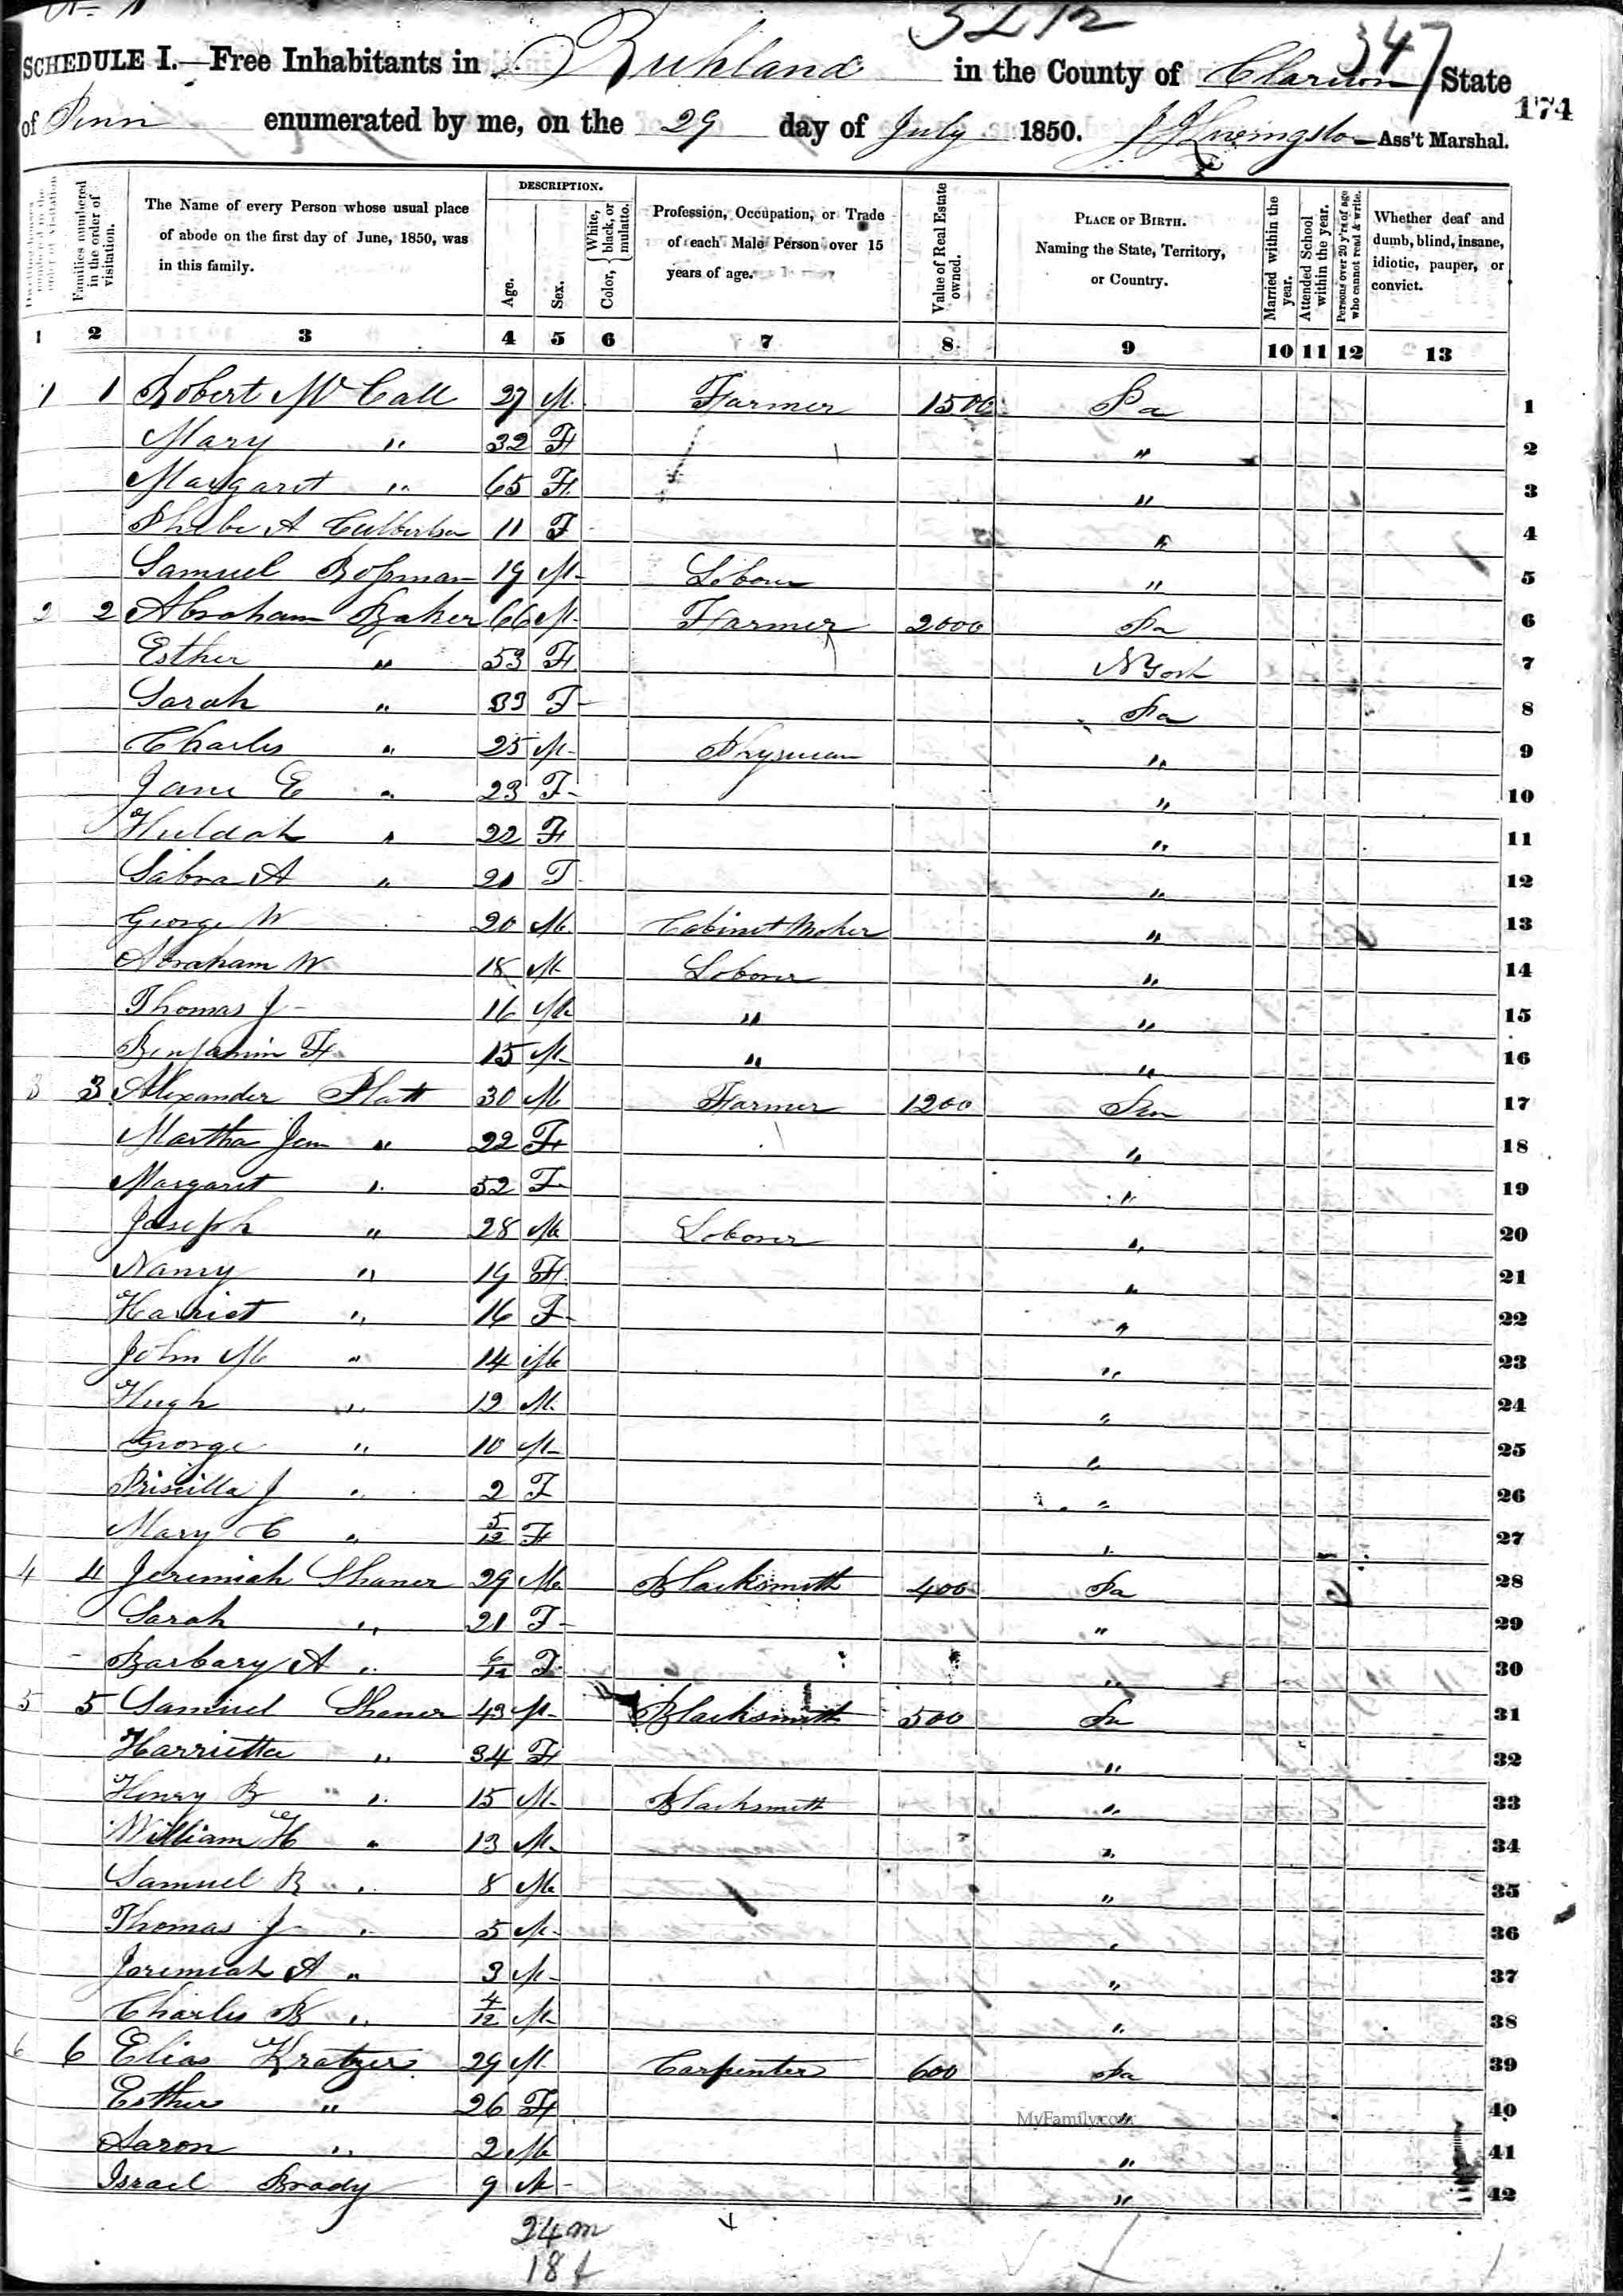 5212
347
SCHEDULE I.—Free Inhabitants in Richland in the County of Clarion State
of Penn enumerated by me, on the 29 day of July 1850. J J Livingston Ass't Marshal.
174
Families numbered in the order of visitation.
The Name of every Person whose usual place of abode on the first day of June, 1850, was in this family.
DESCRIPTION.
Age.
Sex.
Color, { White, black, or mulatto.
Profession, Occupation, or Trade of each Male Person over 15 years of age.
Value of Real Estate owned.
PLACE OF BIRTH. Naming the State, Territory, or Country.
Married within the year.
Attended School within the year.
Persons over 20 y'rs of age who cannot read & write.
Whether deaf and dumb, blind, insane, idiotic, pauper, or convict.
1 2 3 4 5 6 7 8 9 10 11 12 13
1 1 Robert Mc Call 27 M Farmer 1500 Pa 1
Mary " 32 F " 2
Margaret " 65 F " 3
Phebe A Culbertson 11 F " 4
Samuel Boſsman 19 M Labour " 5
2 2 Abraham Baker 66 M Farmer 2000 Pa 6
Esther " 53 F N York 7
Sarah " 33 F Pa 8
Charles " 25 M Physician " 9
Jane E " 23 F " 10
Huldah " 22 F " 11
Sabra A " 21 F " 12
George W 20 M Cabinet Maker " 13
Abraham W 18 M Laborer " 14
Thomas J 16 M " " 15
Benjamin F 15 M " " 16
3 3 Alexander Platt 30 M Farmer 1200 Pen 17
Martha Jane " 22 F " 18
Margaret " 52 F " 19
Joseph " 28 M Laborer " 20
Nancy " 19 F " 21
Harriet " 16 F " 22
John M " 14 M " 23
Hugh " 12 M " 24
George " 10 M " 25
Priscilla J " 2 F " 26
Mary C " 5/12 F " 27
4 4 Jeremiah Shaner 29 M Blacksmith 400 Pa 28
Sarah " 21 F " 29
Barbary A " 6/12 F " 30
5 5 Samuel Shaner 43 M Blacksmith 500 Pa 31
Harrietta " 34 F " 32
Henry B " 15 M Blacksmith " 33
William H " 13 M " 34
Samuel R " 8 M " 35
Thomas J " 5 M " 36
Jeremiah A " 3 M " 37
Charles B " 4/12 M " 38
6 6 Elias Kratzer 29 M Carpenter 600 Pa 39
Esther " 26 F " 40
MyFamily.com
Aaron " 2 M " 41
Israel Brady 9 M " 42
24 m
18 f